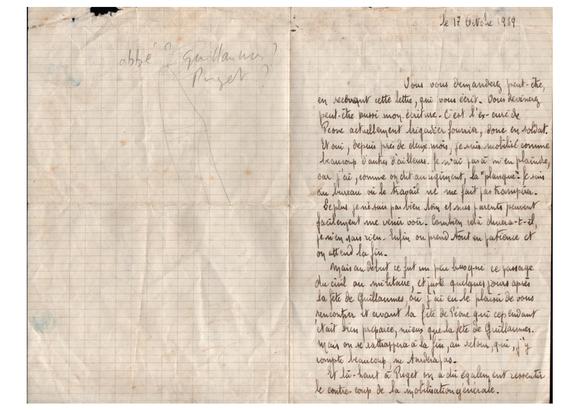 abbé ? Guillaumes ?
Puget ?
le 17 Octobre 1939
Vous vous demanderez peut-être,
en recevant cette lettre, qui vous écrit. Vous devinerez
peut-être aussi mon écriture. C'est l'ex-curé de
Péone actuellement brigadier fourrier, donc en soldat.
Et oui, depuis près de deux mois, je suis mobilisé comme
beaucoup d'autres d'ailleurs. Je n'ai pas à m'en plaindre,
car j'ai, comme on dit au régiment, la "planque". Je suis
au bureau où le travail ne me fait pas transpirer.
De plus je ne suis pas bien loin et mes parents peuvent
facilement me venir voir. Combien cela durera-t-il,
je n'en sais rien. Enfin on prend tout en patience et
on attend la fin.
Mais au début ce fut un peu brusque ce passage
du civil au militaire, et juste quelques jours après
la fête de Guillaumes, où j'ai eu le plaisir de vous
rencontrer et avant la fête de Péone qui cependant
était bien préparée, mieux que la fête de Guillaumes.
Mais on se rattrapera à la fin, au retour, qui, j'y
compte beaucoup, ne tardera pas.
Et là-haut à Puget on a dû également ressentir
le contre-coup de la mobilisation générale.